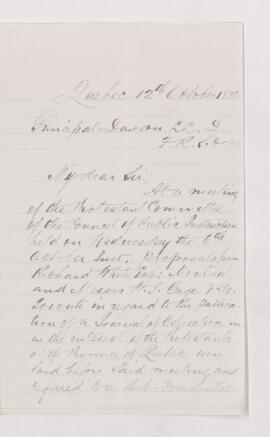 Quebec, 12th October 1880
Principal Dawson LL. D
F. R. S. &c &c
My dear Sir,
At a meeting
of the Protestant Committee
of the Council of Public Instruction
held on Wednesday the 6th
October Inst. proposals from
Richard White Esq: Montreal
and Messrs W. J. Gage & Co.
Toronto in regard to the publica-
tion of a Journal of Education in
in the interest of the Protestants
of the Province of Quebec were
laid before said meeting and
referred to a Sub-Committee